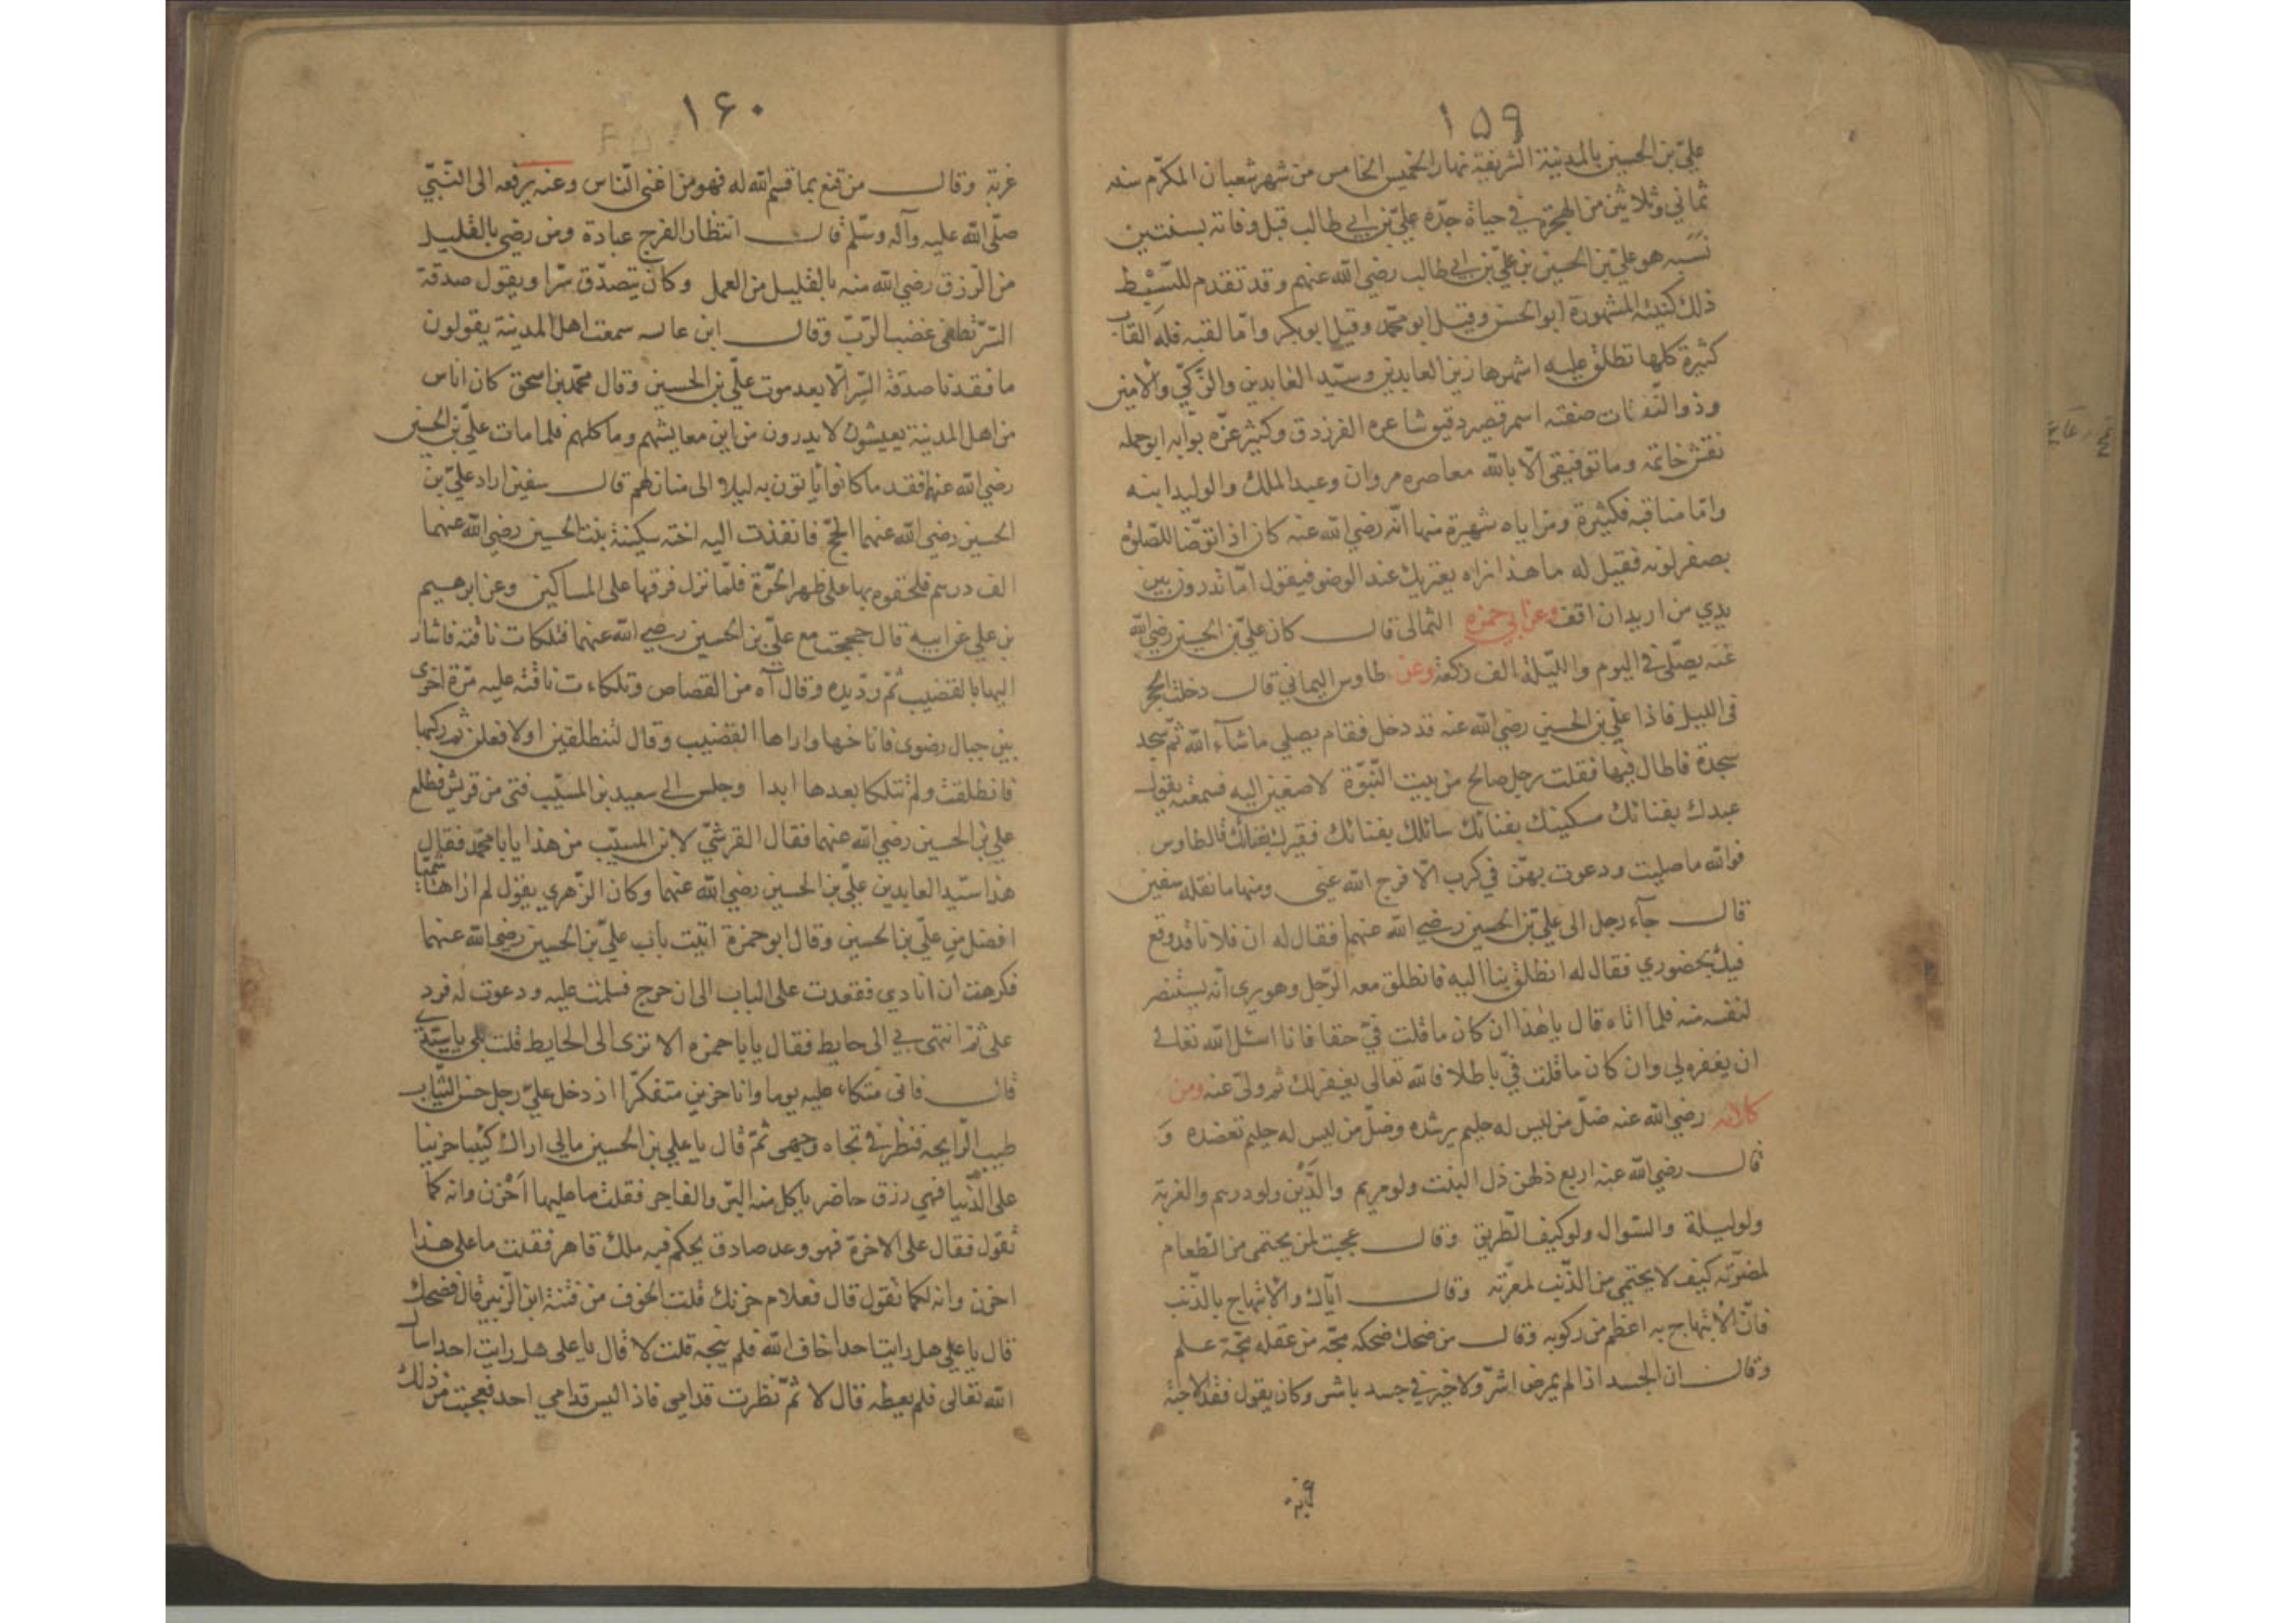 ١٥٩
عليّ بن الحسين بالمدينة الشريفة نهار الخميس الخامس من شهر شعبان المكرّم سنه
ثماني وثلاثين من الهجرة في حياة جدّه عليّ بن ابي طالب قبل وفاته بسنتين
نسبه هو عليّ بن الحسين بن عليّ بن ابي طالب رضي الله عنهم وقد تقدم للتبسيط
ذلك كنيته المشهورة ابو الحسن وقيل ابو محمّد وقيل ابو بكر وامّا لقبه فله القاب
كثيرة كلها تطلق عليه اشهرها زين العابدين وسيّد العابدين والزكيّ والامين
وذو الثفنات صفته اسمر قصير دقيق شاعره الفرزدق وكثير عزّه بوّابه ابو جبله
نقش خاتمه وما توفيقي الّا بالله معاصره مروان وعبد الملك والوليد ابنه
وامّا مناقبه فكثيرة ومزاياه شهيرة منها انّه رضي الله عنه كان اذا توضّا للصّلوٰة
يصفر لونه فقيل له ما هذا نراه يعتريك عند الوضو فيقول امّا تدرون بين
يدي من اريد ان اقف وعن ابي حمزه الثمالى قال كان عليّ بن الحسين رضي الله
عنه يصلّى في اليوم والليّلة الف ركعة وعن طاوس اليماني قال دخلت الحجر
فى الليل فاذا عليّ بن الحسين رضي الله عنه قد دخل فقام يصلي ما شآء الله ثمّ سجد
سجدة فاطال فيها فقلت رجل صالح من بيت النّبوّة لاصغين اليه فسمعته يقول
عبدك بفنائك مسكينك بفنائك سائلك بفنائك فقيرك بفنائك قال طاوس
فوالله ما صليت ودعوت بهنّ في كرب الّا فرج الله عنى ومنها ما نقله سفين
قال جآء رجل الى عليّ بن الحسين رضي الله عنهما فقال له ان فلانا قد وقع
فيك بحضوري فقال له انطلق بنا اليه فانطلق معه الرّجل وهو يرى انه يستنصر
لنفسه منه فلما اتاه قال يا هذا ان كان ما قلت فيّ حقا فانا اسئل الله تعالى
ان يغفره لي وان كان ما قلت فيّ باطلا فالله تعالى يغفر لك ثم ولّى عنه ومن
كلامه رضي الله عنه ضلّ من ليس له حليم يرشده وضلّ من ليس له حليم تعضده وَ
قال رضي الله عنه اربع ذلهن ذل البنت ولو مريم والدَّين ولو درهم والغربة
ولو ليلة والسّوال ولو كيف الطّريق وقال عجبت لمن يحتمى من الطّعام
لمضرّته كيف لا يحتمى من الذّنب لمعرّته وقال ايّاك والابتهاج بالذّنب
فانّ الابتهاج به اعظم من ركوبه وقال من ضحك ضحكه مجّ من عقله مجّة علم
وقال ان الجسد اذا لم يمرض اشرّ ولا خير في جسد ياشر وكان يقول فقد الاحبّة
١٦٠
غربة وقال من قنع بما قسم الله له فهو من اغنى النّاس وعنه يرفعه الى النّبيّ
صلّى الله عليه وآله وسلّم قال انتظار الفرج عبادة ومن رضي بالقليل
من الرّزق رضي الله منه بالقليل من العمل وكان يتصدّق سرّا ويقول صدقة
السّرّ تطفى غضب الرّبّ وقال ابن عايـ سمعت اهل المدينة يقولون
ما فقدنا صدقة السّر الّا بعد موت عليّ بن الحسين وقال محمّد بن اسحق كان اناس
من اهل المدينة يعيشون لا يدرون من اين معايشهم وماكلهم فلما مات عليّ بن الحسين
رضي الله عنهما فقد ما كانوا ياتون به ليلا الى منازلهم قال سفين اراد عليّ بن
الحسين رضي الله عنهما الحجّ فانفذت اليه اخته سكينة بنت الحسين رضي الله عنهما
الف درهم فلحقوه بها على ظهر الحرّة فلمّا نزل فرقها على المساكين وعن ابرهيم
بن علي عن ابيه قال حججت مع عليّ بن الحسين رضي الله عنهما فتلكات ناقته فاشار
اليها بالقضيب ثمّ ردّ يده وقال آه من القصاص وتلكاءت ناقته عليه مرّة اخرى
بين جبال رضوى فاناخها واراها القضيب وقال لتنطلقين اولا فعلن ثم ركبها
فانطلقت ولم تتلكا بعدها ابدا وجلس الى سعيد بن المسيّب فتى من قريش فطلع
علي بن الحسين رضي الله عنهما فقال القرشيّ لابن المسيّب من هذا يا با محمّد فقال
هذا سيّد العابدين عليّ بن الحسين رضي الله عنهما وكان الزّهري يقول لم ار هاشميّا
افضل من عليّ بن الحسين وقال ابو حمزة اتيت باب عليّ بن الحسين رضي الله عنهما
فكرهت ان انادي فقعدت على الباب الى ان خرج فسلمت عليه ودعوت له فرد
على ثم انتهى بي الى حايط فقال يا با حمزه الا ترى الى الحايط قلت بلى يا سيّدي
قال فانى متكاء عليه يوما وانا حزين متفكّر اذ دخل عليّ رجل حسن الثّياب
طيب الرّايحه فنظر في تجاه وجهى ثمّ قال يا علي بن الحسين مالي اراك كئيبا حزينا
على الدّنيا فهي رزق حاضر ياكل منه البرّ والفاجر فقلت ما عليها اَحْزن وانه كما
تقول فقال على الاخرة فهو وعد صادق يحكم فيه ملك قاهر فقلت ما على هذا
احزن وانه لكما تقول قال فعلام حزنك قلت الخوف من فتنة ابن الزّبير قال فضحك
قال يا علي هل رايت احدا خاف الله فلم ينجه قلت لا قال يا على هل رايت احدا سال
الله تعالى فلم يعطه قال لا ثمّ نظرت قدامى فاذا ليس قدامي احد فعجبت من ذلك